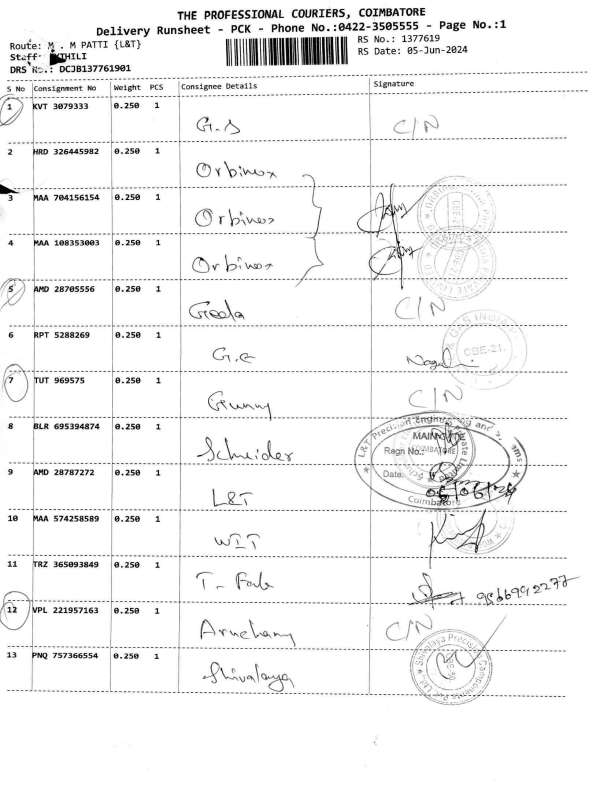 THE PROFESSIONAL COURIERS, COIMBATORE
Delivery Runsheet - PCK - Phone No.:0422-3505555 - Page No.:1
Route: M . M PATTI {L&T}
RS No.: 1377619
Staff: THILI
RS Date: 05-Jun-2024
DRS No.: DCJB137761901
S No Consignment No Weight PCS Consignee Details Signature
1 KVT 3079333 0.250 1 G.S C/N
2 HRD 326445982 0.250 1 Orbinox
3 MAA 704156154 0.250 1 Orbinox
4 MAA 108353003 0.250 1 Orbinox
5 AMD 28705556 0.250 1 Geeta C/N
6 RPT 5288269 0.250 1 G.E
CBE-21.
7 TUT 969575 0.250 1 Gunny C/N
8 BLR 695394874 0.250 1 Schneider
L&T Precision Engineering and
MAIN
Regn No.:
COIMBATORE
Date:
05/06/24
Coimbatore
9 AMD 28787272 0.250 1 L&T
10 MAA 574258589 0.250 1 WIT
11 TRZ 365093849 0.250 1 9566992277
12 VPL 221957163 0.250 1 C/N
13 PNQ 757366554 0.250 1 Shivalaya
Shivalaya Precision Components Pvt. Ltd.